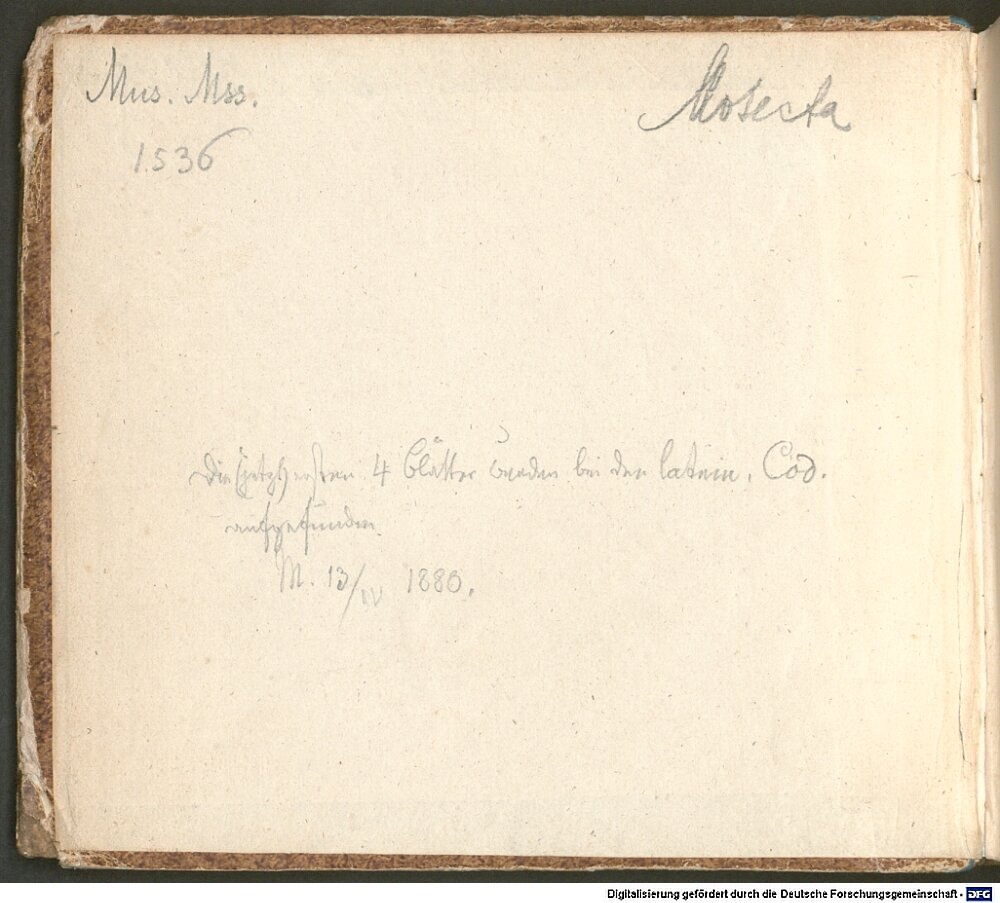 Mus. Mss.
1536
Motecta
Die jetzt ersten 4 Blätter wurden bei den latein. Cod.
aufgefunden
M. 13/IV 1880.
Digitalisierung gefördert durch die Deutsche Forschungsgemeinschaft - DFG